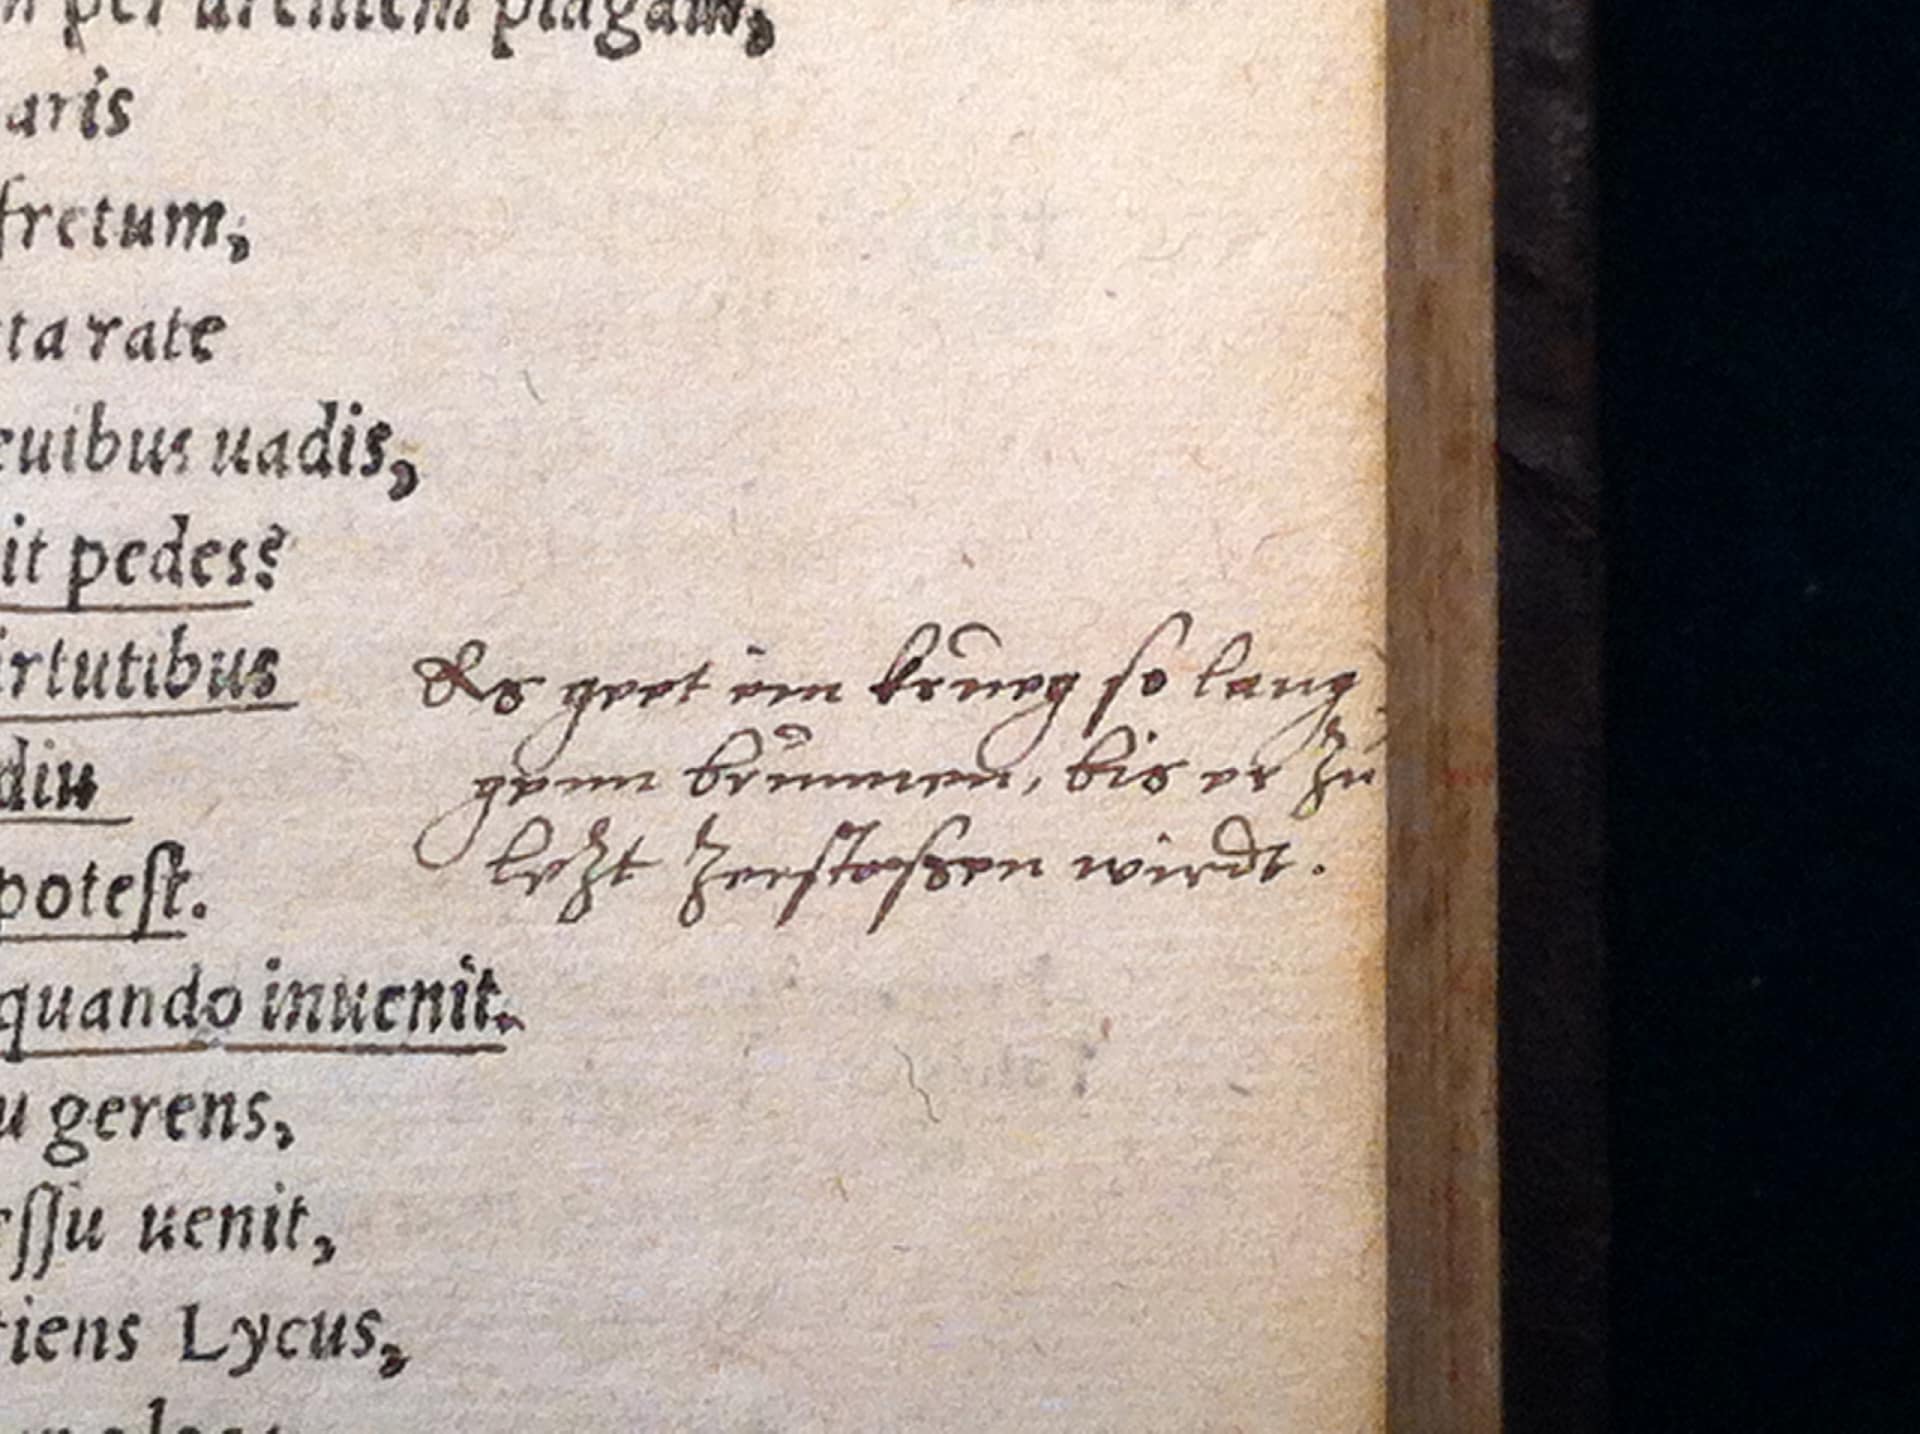 per ardentem plagam,
aris
fretum,
ta rate
euibus uadis,
it pedes?
irtutibus
diu
potest.
quando inuenit.
u gerens,
essu uenit,
tiens Lycus,
Es geet ein krueg so lang
genn brunnen, bis er zu
letzt zerstossen wirdt.